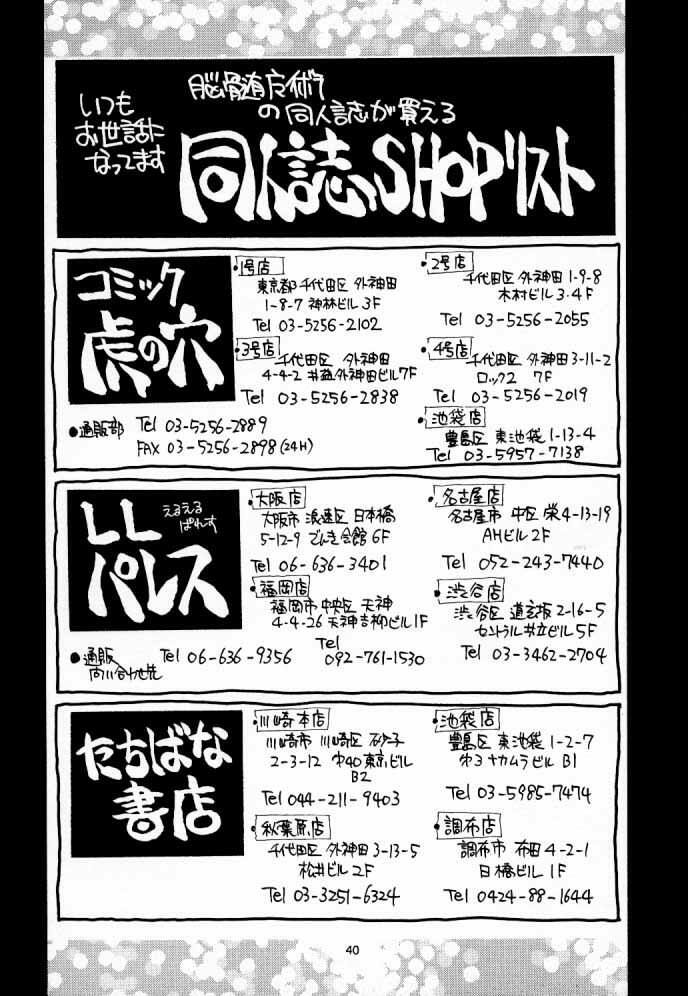 いつも
お世話に
なってます
脳髄
の同人誌が買える
同人誌SHOPリスト
コミック
虎の穴
・1号店
東京都千代田区 外神田
1-8-7 神林ビル 3F
Tel 03-5256-2102
・2号店
千代田区 外神田 1-9-8
木村ビル 3・4F
Tel 03-5256-2055
・3号店
千代田区 外神田
4-4-2 外神田ビル7F
Tel 03-5256-2838
・4号店
千代田区 外神田3-11-2
ロック2 7F
Tel 03-5256-2019
・池袋店
豊島区 東池袋 1-13-4
Tel 03-5957-7138
●通販部 Tel 03-5256-2889
FAX 03-5256-2898(24H)
LL
パレス
えるえる
ぱれす
・大阪店
大阪市 浪速区 日本橋
5-12-9 でんき会館 6F
Tel 06-636-3401
・名古屋店
名古屋市 中区 栄4-13-19
AHビル 2F
Tel 052-243-7440
・福岡店
福岡市 中央区 天神
4-4-26 天神吉柳ビル1F
Tel
092-761-1530
・渋谷店
渋谷区 道玄坂 2-16-5
セントラル井立ビル5F
Tel 03-3462-2704
●通販
問い合わせ先
Tel 06-636-9356
たちばな
書店
・川崎本店
川崎市 川崎区 砂子
2-3-12 オ40東京ビル
B2
Tel 044-211-9403
・池袋店
豊島区 東池袋 1-2-7
オ3ナカムラビル B1
Tel 03-5985-7474
・秋葉原店
千代田区 外神田 3-13-5
松井ビル 2F
Tel 03-3251-6324
・調布店
調布市 布田 4-2-1
日橋ビル 1F
Tel 0424-88-1644
40